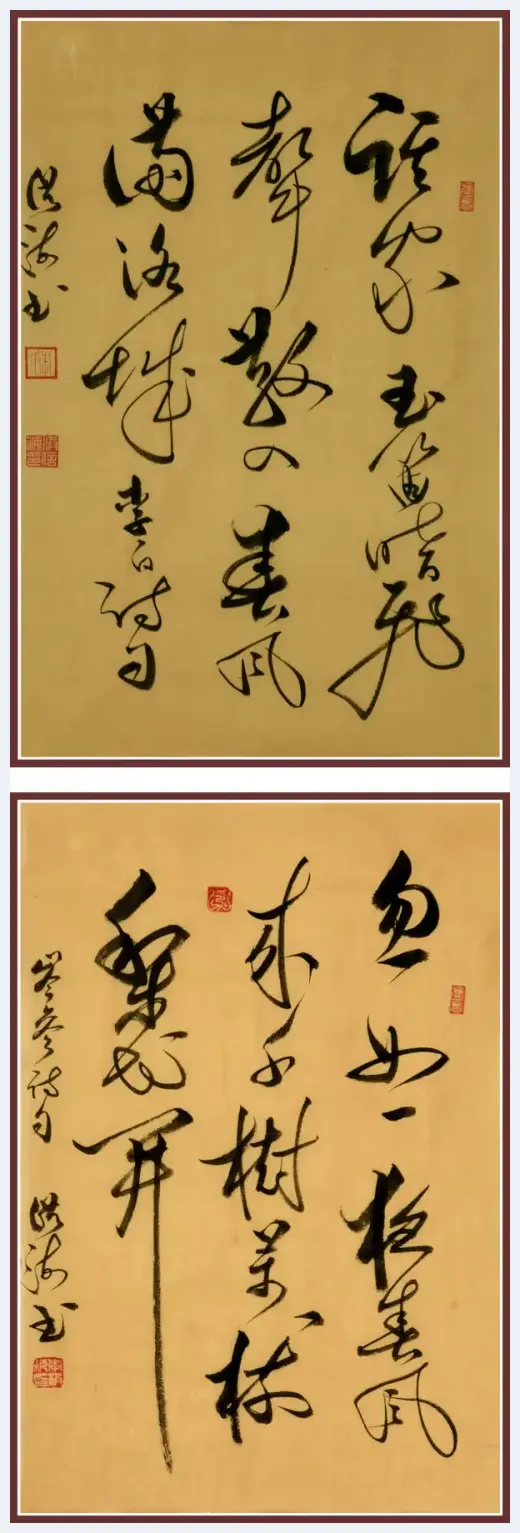 誰家玉笛暗飛
聲散入春風
滿洛城 李白詩句
書
忽如一夜春風
來千樹萬樹
梨花開
岑參詩句 書